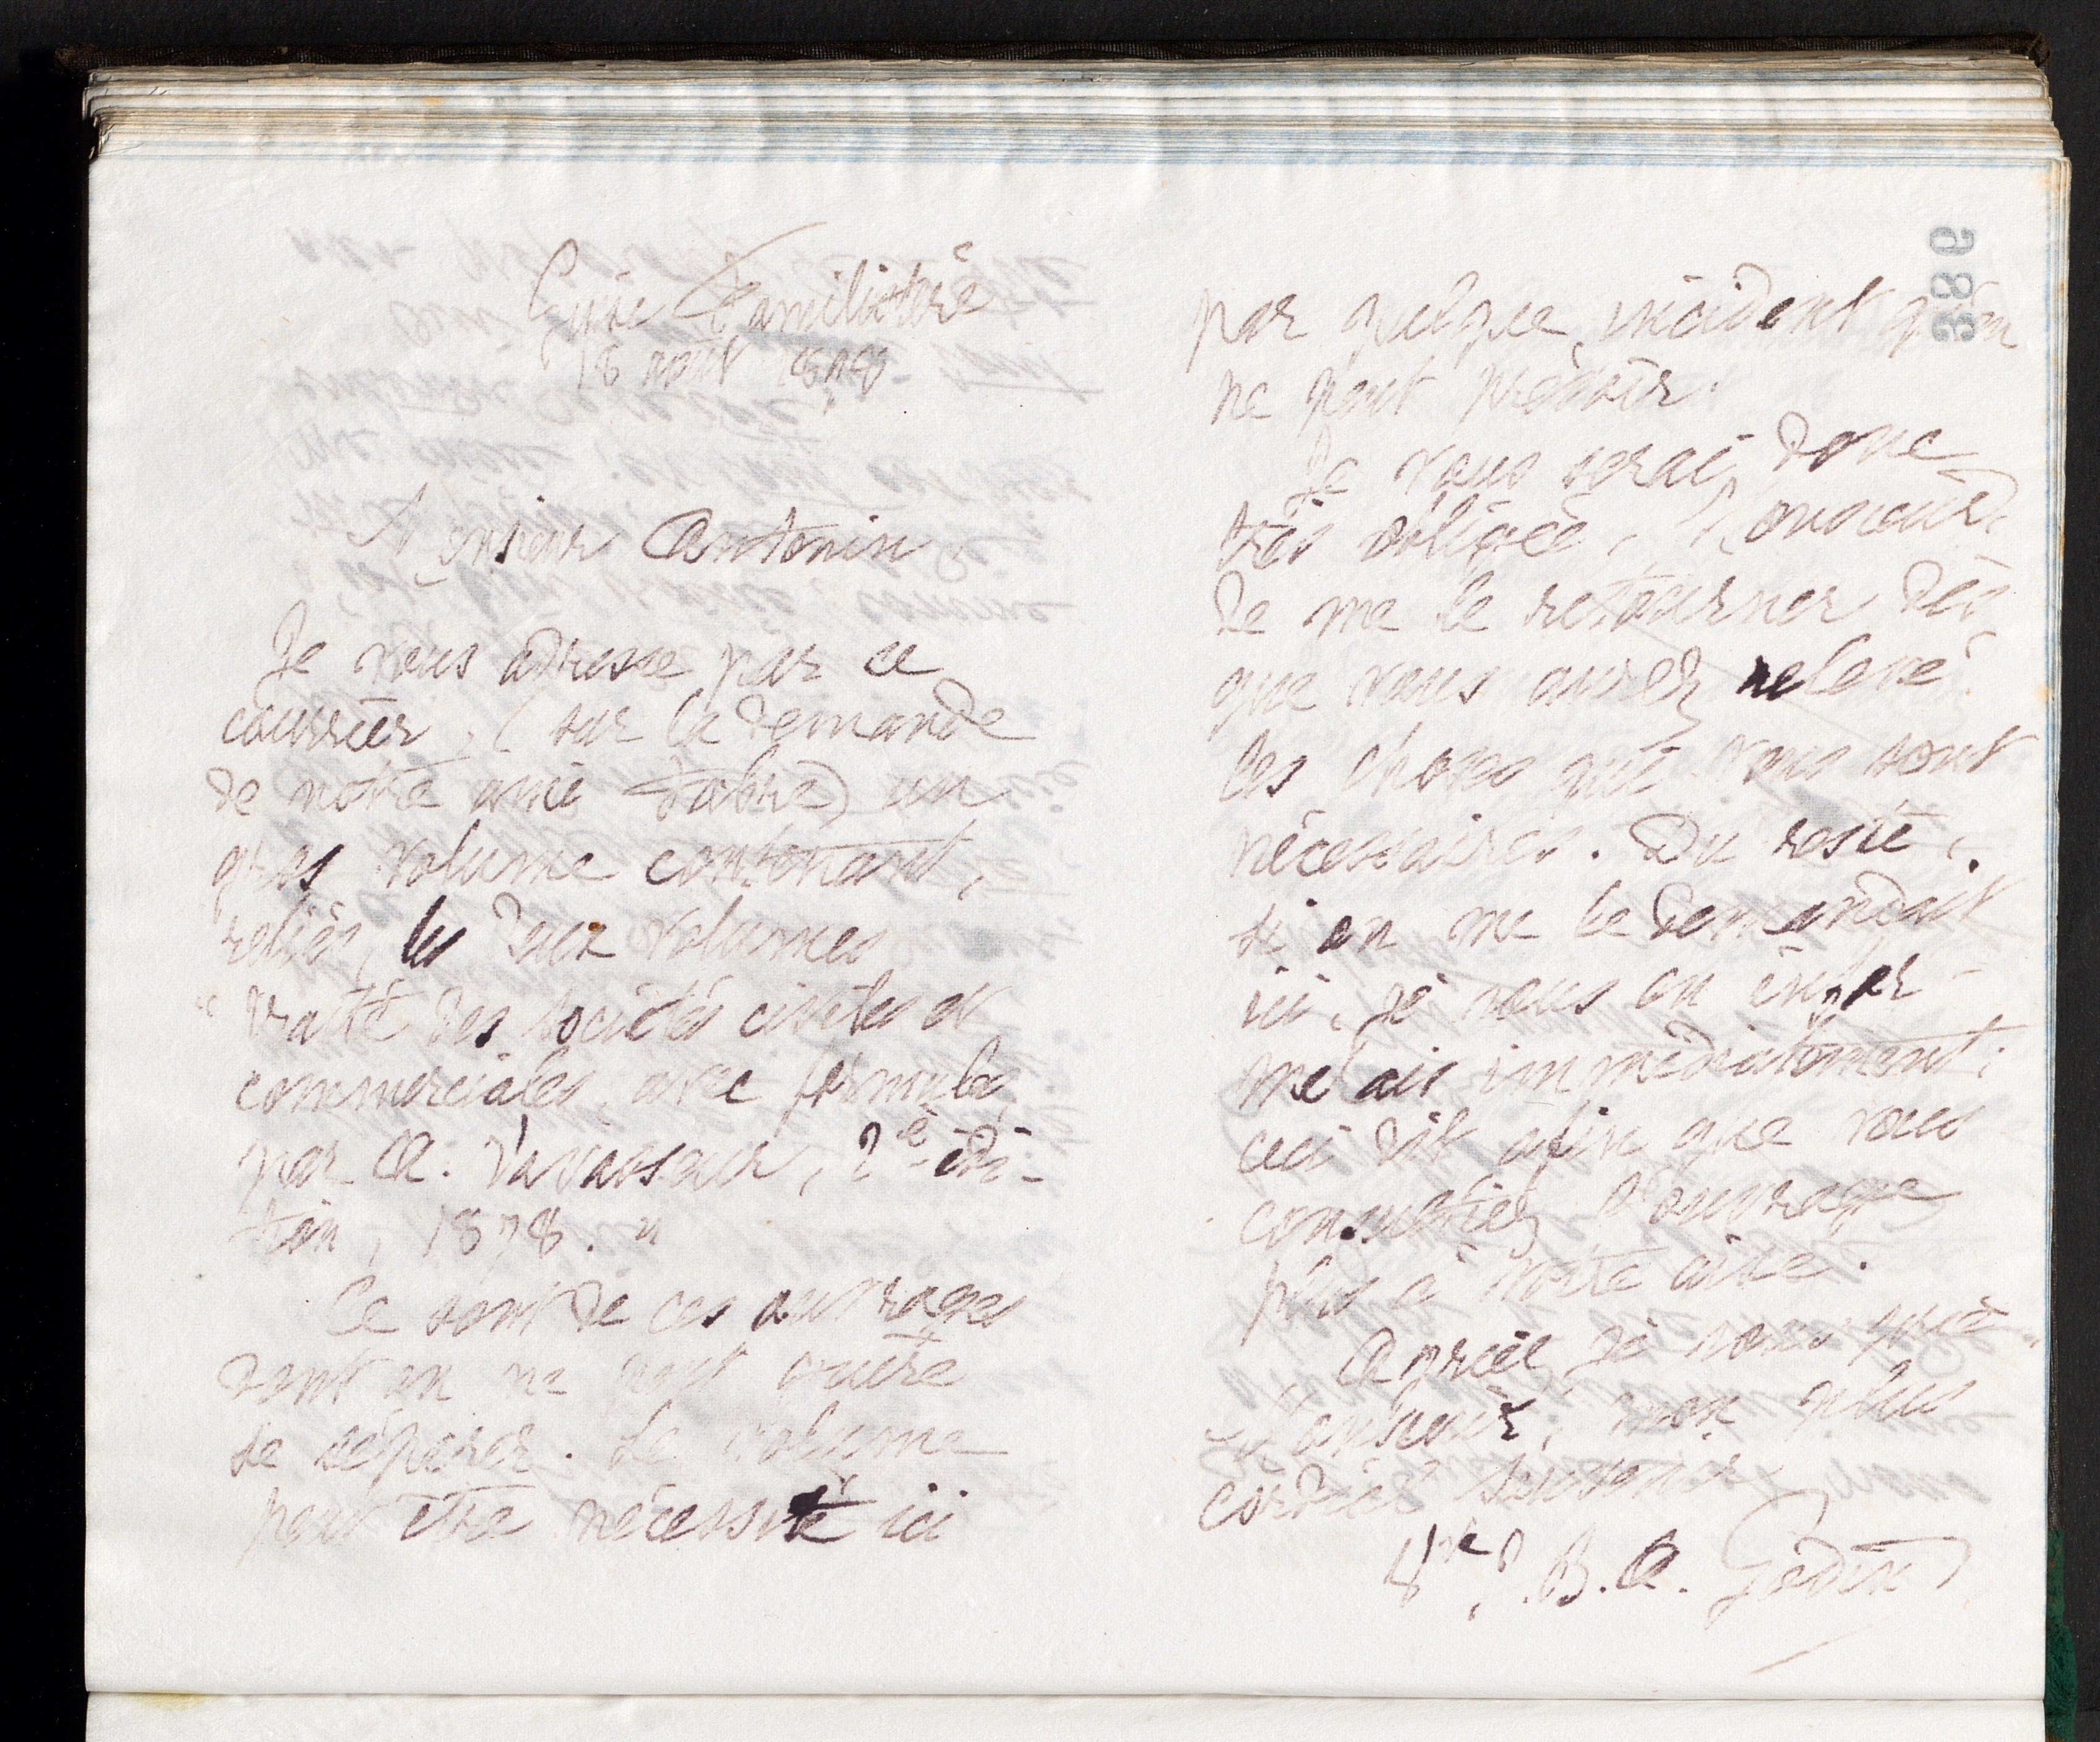 Guise Familistère
18 août 1878
Monsieur Antonin
Je vous adresse par ce
courrier, (sur la demande
de notre ami Fabre) un
gros volume contenant,
reliés, les deux volumes
" Traité des sociétés civiles et
commerciales, avec formules,
par A. Vavasseur, 2e édi-
tion, 1878. "
Ce sont de ces ouvrages
dont on ne peut guère
se séparer. Le volume
peut être nécessité ici
386
par quelque incident qu'on
ne peut prévoir.
Je vous serai donc
très obligée, Monsieur,
de me le retourner dès
que vous aurez relevé
les choses qui vous sont
nécessaires. Du reste,
si on me le demandait
ici, je vous en infor-
merais immédiatement;
ceci dit afin que vous
consultiez l'ouvrage
plus à votre aise.
Agréez, je vous prie,
Monsieur, mon plus
cordial souvenir
Vve P. B. A. Godin